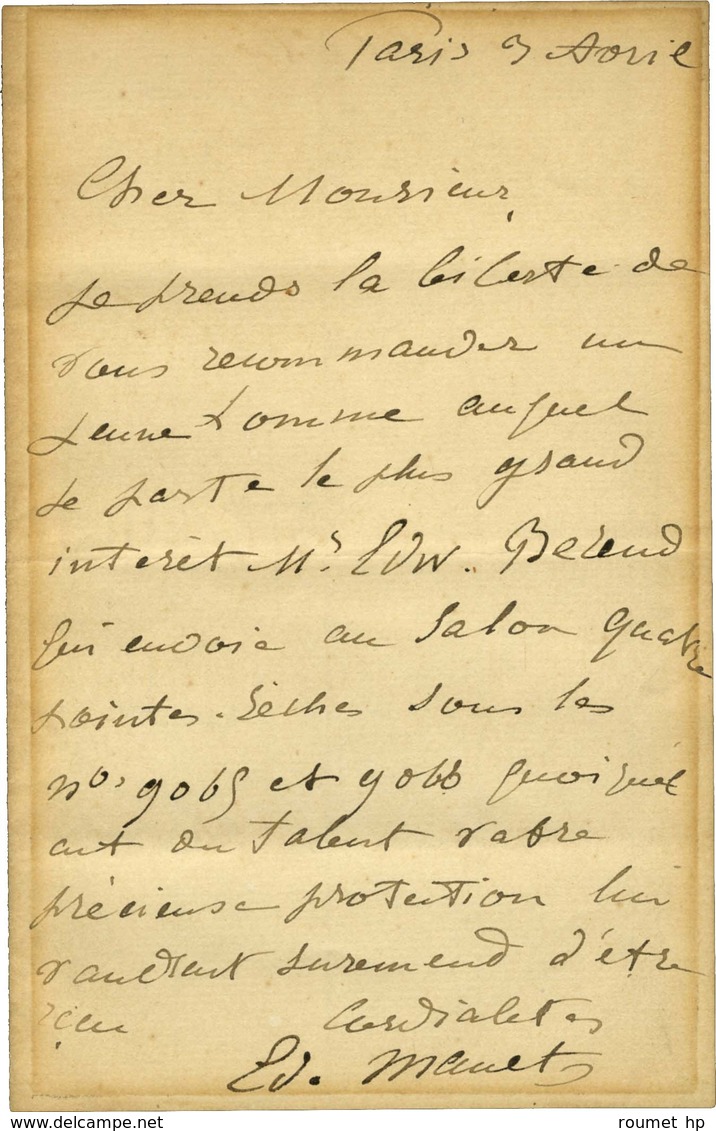 Paris 3 Avril
Cher Monsieur,
je prends la liberte de
vous recommander un
jeune homme auquel
je porte le plus grand
interêt Mr Edw. Berend
qui envoie au Salon quatre
pointes-sèches sous les
nos 9065 et 9066 quoiqu'il
ait du talent votre
précieuse protection lui
vaudrait surement d'être
reçu Cordialites
Ed. Manet
roumet hp